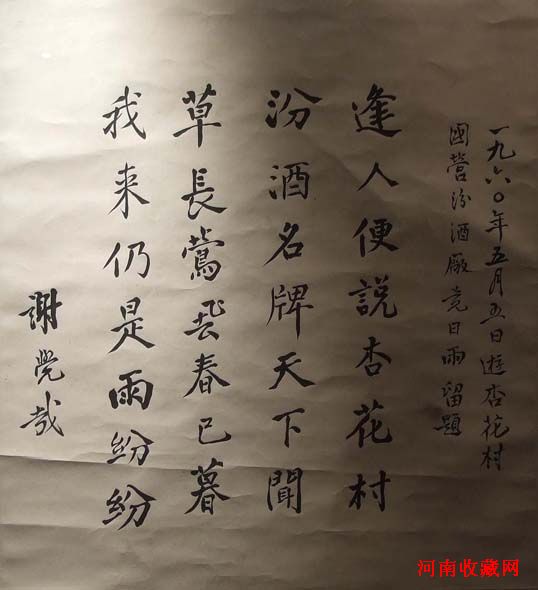 一九六〇年五月五日遊杏花村
國營汾酒廠竟日雨留題
逢人便説杏花村
汾酒名牌天下聞
草長鶯飛春已暮
我来仍是雨紛紛
謝覺哉
河南收藏网